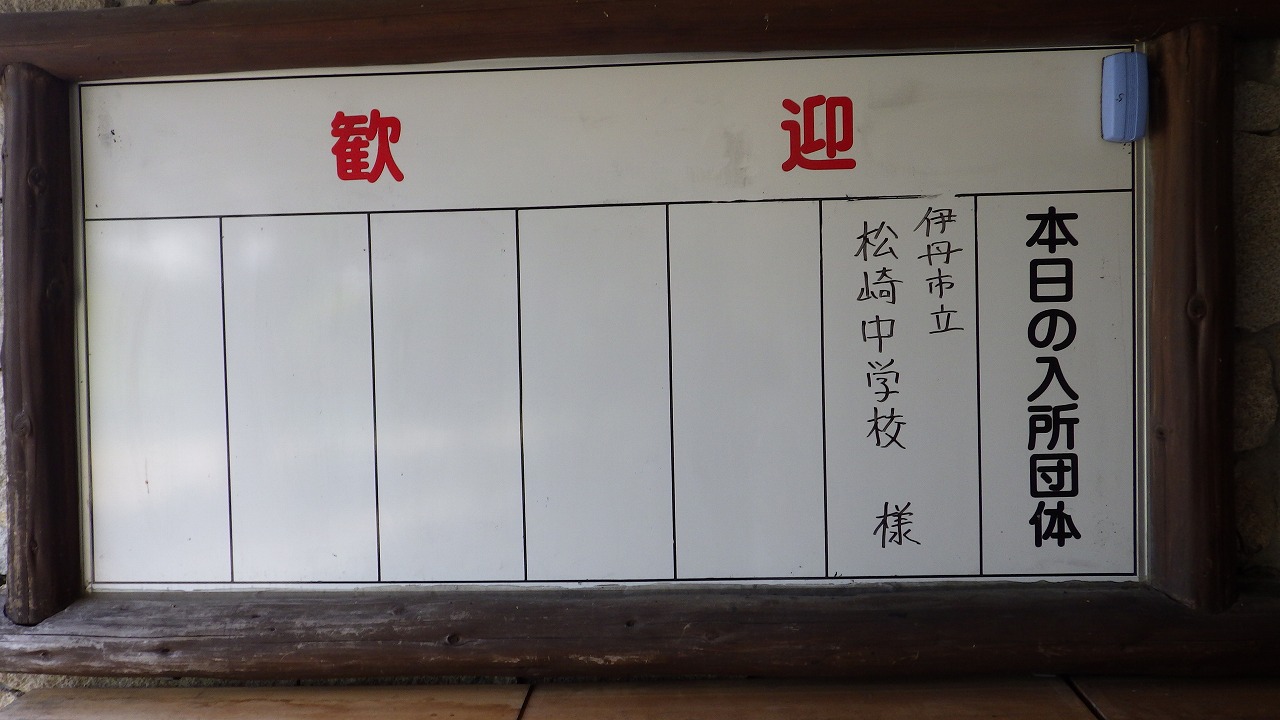 歓迎
本日の入所団体
伊丹市立
松崎中学校 様